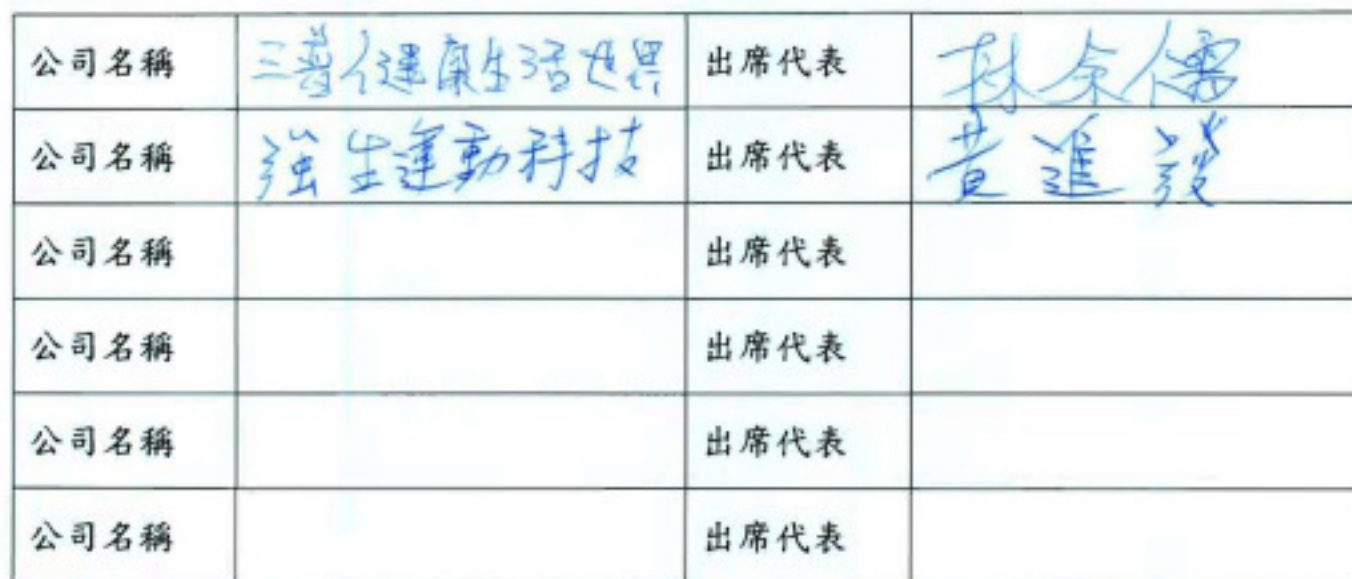 公司名稱 三普健康生活世界 出席代表 林余儒
公司名稱 強生運動科技 出席代表 黃進發
公司名稱 出席代表
公司名稱 出席代表
公司名稱 出席代表
公司名稱 出席代表